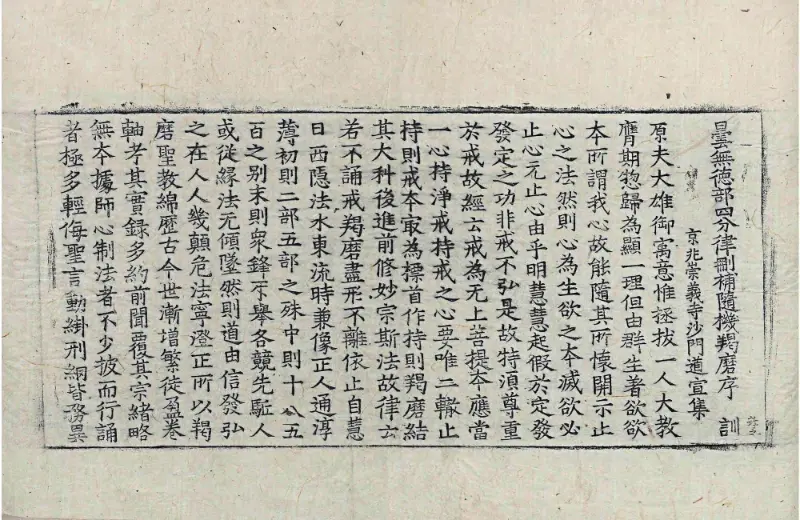 曇無德部四分律刪補隨機羯磨序　訓
京兆崇義寺沙門道宣集
原夫大雄御寓意惟拯拔一人大教
膺期惣歸為顯一理但由群生著欲欲
夲所謂我心故能隨其所懷開示止
心之法然則心為生欲之夲滅欲必
止心元止心由乎明慧慧起假於定發
發定之功非戒不弘是故特湏尊重
於戒故經云戒為无上菩提夲應當
一心持淨戒持戒之心要唯二轍止
持則戒夲冣為摽首作持則羯磨結
其大科後進前修妙宗斯法故律云
若不誦戒羯磨盡形不離依止自慧
日西隠法水東流時兼像正人通淳
薄初則二部五部之殊中則十八五
百之别末則衆鋒互舉各競先駈人
或從緣法无傾墜然則道由信發弘
之在人人幾顛危法寧澄正所以羯
磨聖教綿歷古今世漸增繁徒盈卷
軸考其實録多約前聞覆其宗緒略
無夲據師心制法者不少披而行誦
者極多輕侮聖言動掛刑綱皆務異